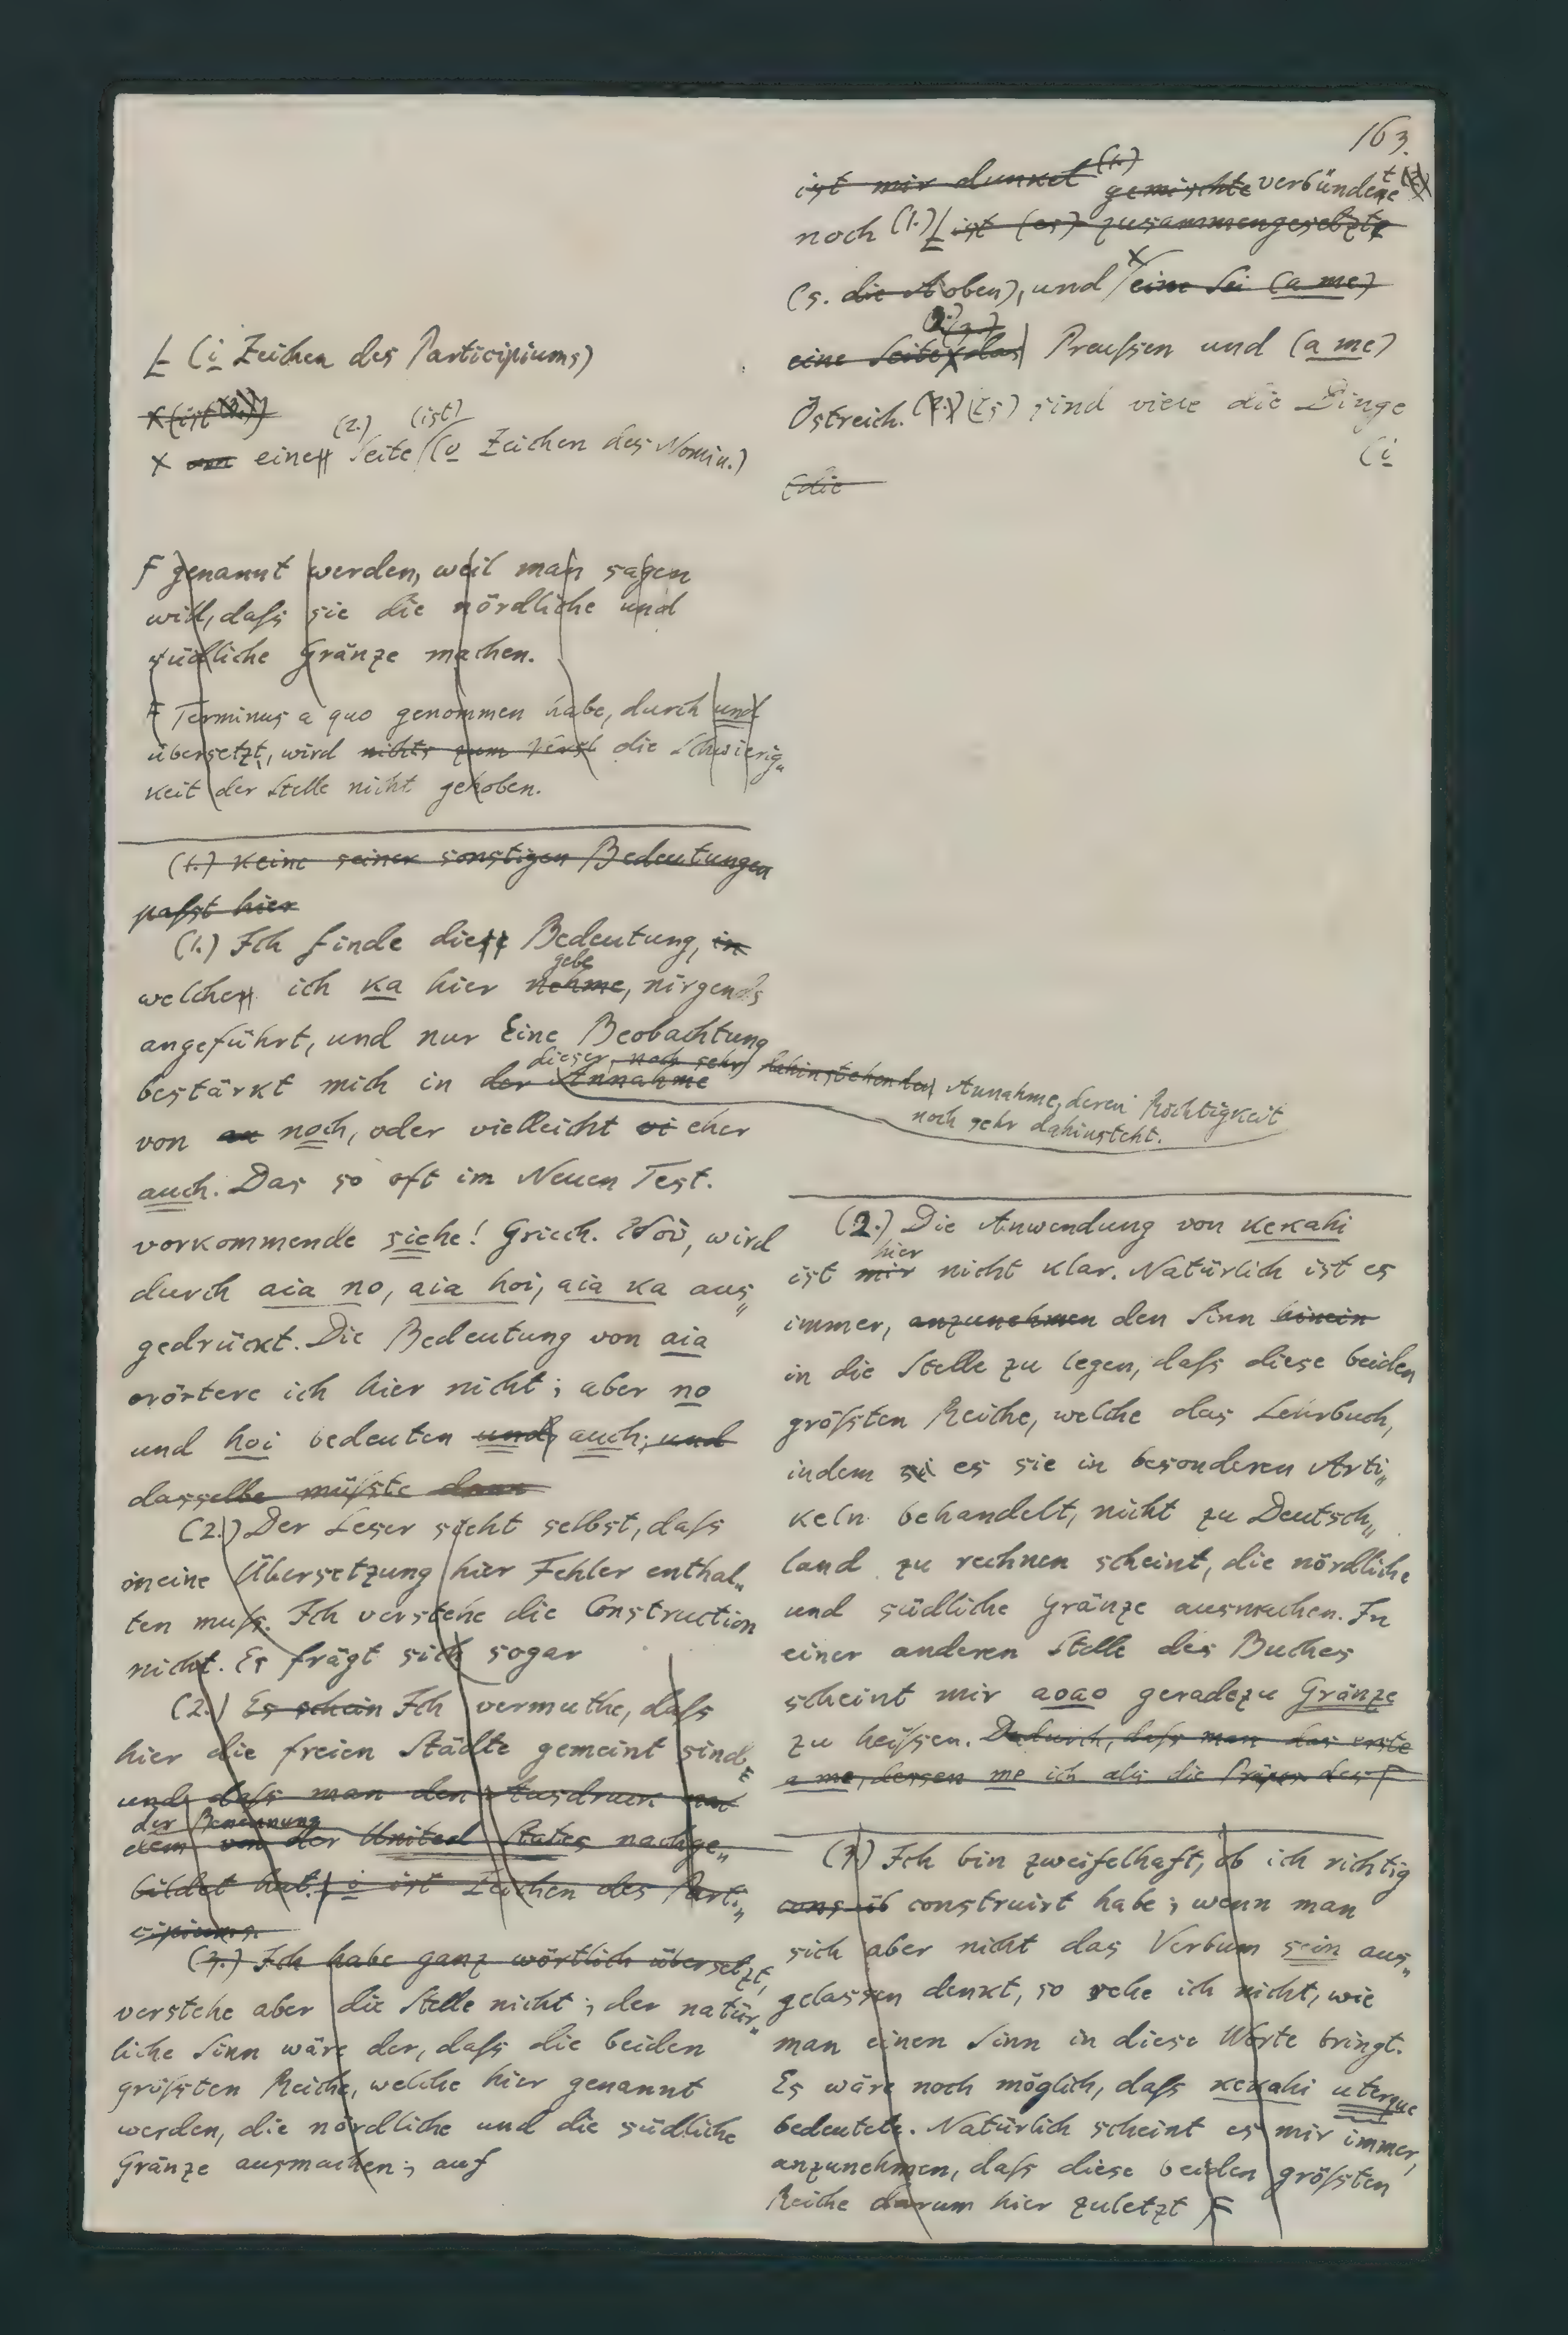 163.
ist mir dunkel (1.) gemischte verbündete
noch (1.) Ł ist (es) zusammengesetzte
(s. die A oben), und x eine Sei (a me)
eine Seite das Preußen und (a me)
Östreich. (Es) sind viele die Dinge
(i
(die
Ł (i Zeichen des Participiums)
x (ist
x eine Seite (2.) (ist) (o Zeichen des Nomin.)
F genannt werden, weil man sagen
will, daß sie die nördliche und
südliche Gränze machen.
F Terminus a quo genommen habe, durch und
übersetzt, wird nichts zum Verst die Schwierig„
keit der Stelle nicht gehoben.
(1.) keine seiner sonstigen Bedeutungen
paßt hier
(1.) Ich finde die Bedeutung, in
welche ich ka hier nehme gebe, nirgends
angeführt, und nur Eine Beobachtung
bestärkt mich in der Annahme dieser, noch sehr dahinstehenden Annahme, deren Richtigkeit
noch sehr dahinsteht.
von an noch, oder vielleicht vi eher
auch. Das so oft im Neuen Test.
vorkommende siehe! Griech. ἰδού, wird
durch aia no, aia hoi, aia ka aus„
gedrückt. Die Bedeutung von aia
erörtere ich hier nicht; aber no
und hoi bedeuten und, auch; und
dasselbe müßte dann
(2.) Der Leser sieht selbst, daß
meine Übersetzung hier Fehler enthal„
ten muß. Ich verstehe die Construction
nicht. Es frägt sich sogar
(2.) Es schein Ich vermuthe, daß
hier die freien Städte gemeint sind
und daß man den Ausdruck nac
der Benennung
dem von der United States nachge„
bildet hat. i ist Zeichen des Parti„
cipiums.
(3.) Ich habe ganz wörtlich übersetzt,
verstehe aber die Stelle nicht; der natür„
liche Sinn wäre der, daß die beiden
größten Reiche, welche hier genannt
werden, die nördliche und die südliche
Gränze ausmachen; auf
(2.) Die Anwendung von kekahi
ist mir hier nicht klar. Natürlich ist es
immer, anzunehmen den Sinn hinein
in die Stelle zu legen, daß diese beiden
größten Reiche, welche das Lehrbuch,
indem si es sie in besonderen Arti„
keln behandelt, nicht zu Deutsch„
land zu rechnen scheint, die nördliche
und südliche Gränze ausmachen. In
einer anderen Stelle des Buches
scheint mir aoao geradezu Gränze
zu heißen. Dadurch, daß man das erste
a me, dessen me ich als die Präpos des F
(3.) Ich bin zweifelhaft, ob ich richtig
cons ib construirt habe; wenn man
sich aber nicht das Verbum sein aus„
gelassen denkt, so sehe ich nicht, wie
man einen Sinn in diese Worte bringt.
Es wäre noch möglich, daß kekahi uterque
bedeutete. Natürlich scheint es mir immer,
anzunehmen, daß diese beiden größten
Reiche darum hier zuletzt F